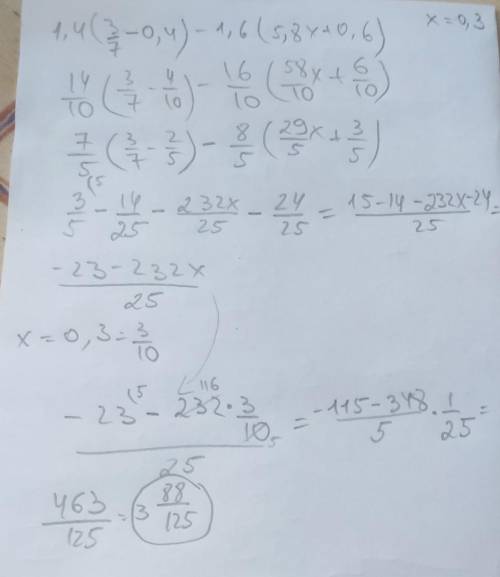 1,4(3/7 - 0,4) - 1,6(5,8x + 0,6)
x = 0,3
14/10 (3/7 - 4/10) - 16/10 (58x/10 + 6/10)
7/5 (3/7 - 2/5) - 8/5 (29/5 x + 3/5)
3/5 (5 - 14/25 - 232x/25 - 24/25 = (15 - 14 - 232x - 24)/25 =
(-23 - 232x)/25
x = 0,3 = 3/10
(-23 (5 - 232 116 · 3/10 5)/25 = (-115 - 348)/5 · 1/25 =
463/125 = 3 88/125